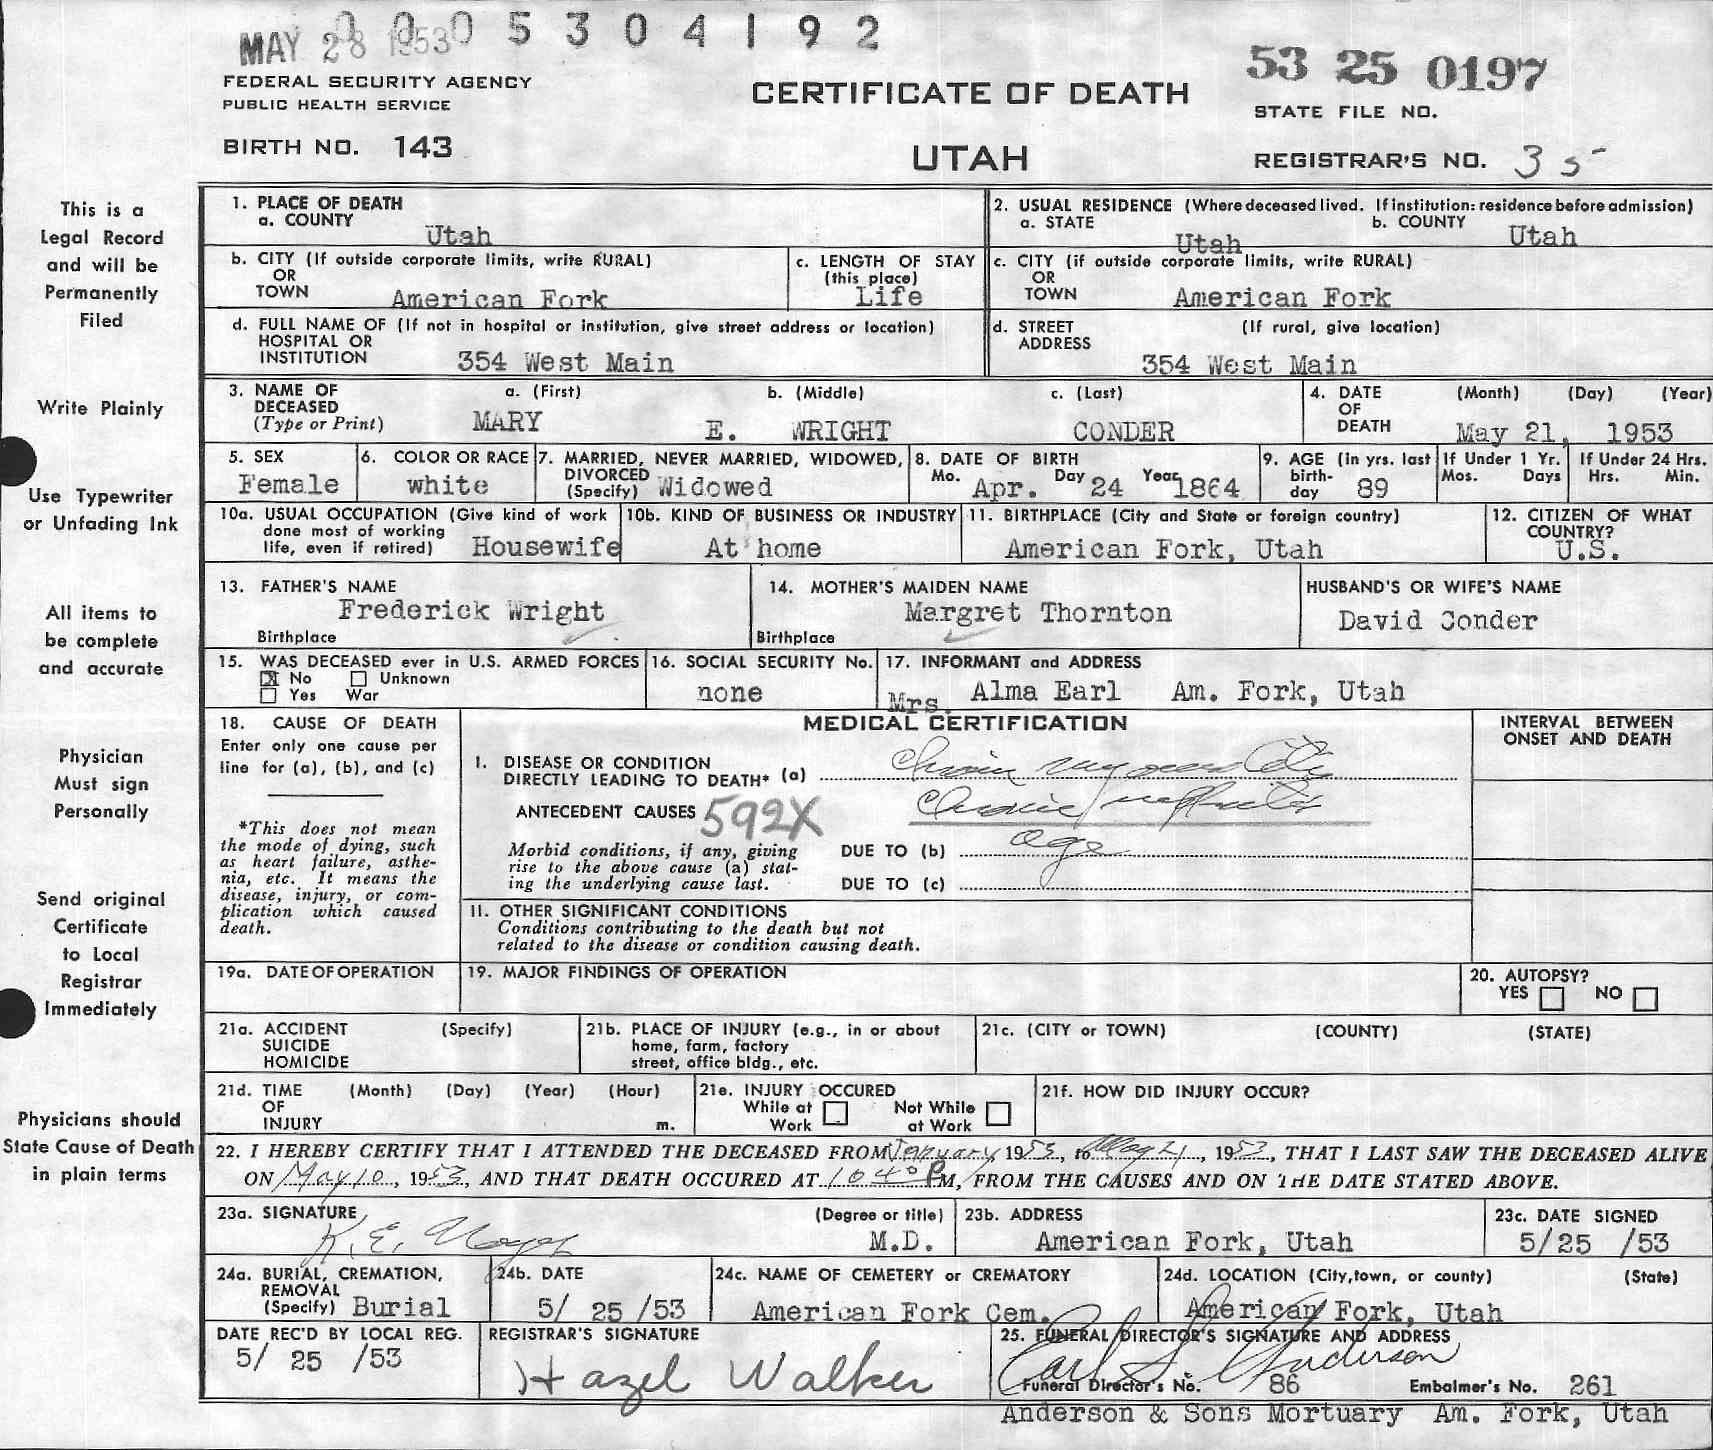 0005304192
MAY 28 1953
53 25 0197
FEDERAL SECURITY AGENCY
PUBLIC HEALTH SERVICE
CERTIFICATE OF DEATH
STATE FILE NO.
BIRTH NO. 143
UTAH
REGISTRAR'S NO. 35
This is a
Legal Record
and will be
Permanently
Filed
Write Plainly
Use Typewriter
or Unfading Ink
All items to
be complete
and accurate
Physician
Must sign
Personally
Send original
Certificate
to Local
Registrar
Immediately
Physicians should
State Cause of Death
in plain terms
1. PLACE OF DEATH
a. COUNTY
Utah
2. USUAL RESIDENCE (Where deceased lived. If institution: residence before admission)
a. STATE Utah b. COUNTY Utah
b. CITY (If outside corporate limits, write RURAL)
OR
TOWN American Fork
c. LENGTH OF STAY
(this place)
Life
c. CITY (if outside corporate limits, write RURAL)
OR
TOWN American Fork
d. FULL NAME OF (If not in hospital or institution, give street address or location)
HOSPITAL OR
INSTITUTION 354 West Main
d. STREET (If rural, give location)
ADDRESS
354 West Main
3. NAME OF
DECEASED
(Type or Print)
a. (First) b. (Middle) c. (Last)
MARY E. WRIGHT CONDER
4. DATE
OF
DEATH
(Month) (Day) (Year)
May 21, 1953
5. SEX
Female
6. COLOR OR RACE
white
7. MARRIED, NEVER MARRIED, WIDOWED,
DIVORCED
(Specify) Widowed
8. DATE OF BIRTH
Mo. Apr. Day 24 Year 1864
9. AGE (In yrs. last
birth-
day 89
If Under 1 Yr.
Mos. Days
If Under 24 Hrs.
Hrs. Min.
10a. USUAL OCCUPATION (Give kind of work
done most of working
life, even if retired) Housewife
10b. KIND OF BUSINESS OR INDUSTRY
At home
11. BIRTHPLACE (City and State or foreign country)
American Fork, Utah
12. CITIZEN OF WHAT
COUNTRY?
U.S.
13. FATHER'S NAME
Frederick Wright
Birthplace
14. MOTHER'S MAIDEN NAME
Margret Thornton
Birthplace
HUSBAND'S OR WIFE'S NAME
David Conder
15. WAS DECEASED ever in U.S. ARMED FORCES
X No Unknown
Yes War
16. SOCIAL SECURITY No.
none
17. INFORMANT and ADDRESS
Mrs. Alma Earl Am. Fork, Utah
18. CAUSE OF DEATH
Enter only one cause per
line for (a), (b), and (c)
*This does not mean
the mode of dying, such
as heart failure, asthe-
nia, etc. It means the
disease, injury, or com-
plication which caused
death.
MEDICAL CERTIFICATION
INTERVAL BETWEEN
ONSET AND DEATH
I. DISEASE OR CONDITION
DIRECTLY LEADING TO DEATH* (a) Chronic myocarditis
ANTECEDENT CAUSES 592X Chronic nephritis
Morbid conditions, if any, giving
rise to the above cause (a) stat-
ing the underlying cause last.
DUE TO (b) age
DUE TO (c)
II. OTHER SIGNIFICANT CONDITIONS
Conditions contributing to the death but not
related to the disease or condition causing death.
19a. DATE OF OPERATION
19. MAJOR FINDINGS OF OPERATION
20. AUTOPSY?
YES NO
21a. ACCIDENT (Specify)
SUICIDE
HOMICIDE
21b. PLACE OF INJURY (e.g., in or about
home, farm, factory
street, office bldg., etc.
21c. (CITY or TOWN) (COUNTY) (STATE)
21d. TIME (Month) (Day) (Year) (Hour)
OF
INJURY m.
21e. INJURY OCCURED
While at Work Not While at Work
21f. HOW DID INJURY OCCUR?
22. I HEREBY CERTIFY THAT I ATTENDED THE DECEASED FROM January 1953, to May 21, 1953, THAT I LAST SAW THE DECEASED ALIVE
ON May 10, 1953, AND THAT DEATH OCCURED AT 10 40 P M, FROM THE CAUSES AND ON THE DATE STATED ABOVE.
23a. SIGNATURE (Degree or title)
K. E. Noyes M.D.
23b. ADDRESS
American Fork, Utah
23c. DATE SIGNED
5/25 /53
24a. BURIAL, CREMATION,
REMOVAL
(Specify) Burial
24b. DATE
5/ 25 /53
24c. NAME OF CEMETERY or CREMATORY
American Fork Cem.
24d. LOCATION (City, town, or county) (State)
American Fork, Utah
DATE REC'D BY LOCAL REG.
5/ 25 /53
REGISTRAR'S SIGNATURE
Hazel Walker
25. FUNERAL DIRECTOR'S SIGNATURE AND ADDRESS
Earl S. Anderson
Funeral Director's No. 86 Embalmer's No. 261
Anderson & Sons Mortuary Am. Fork, Utah